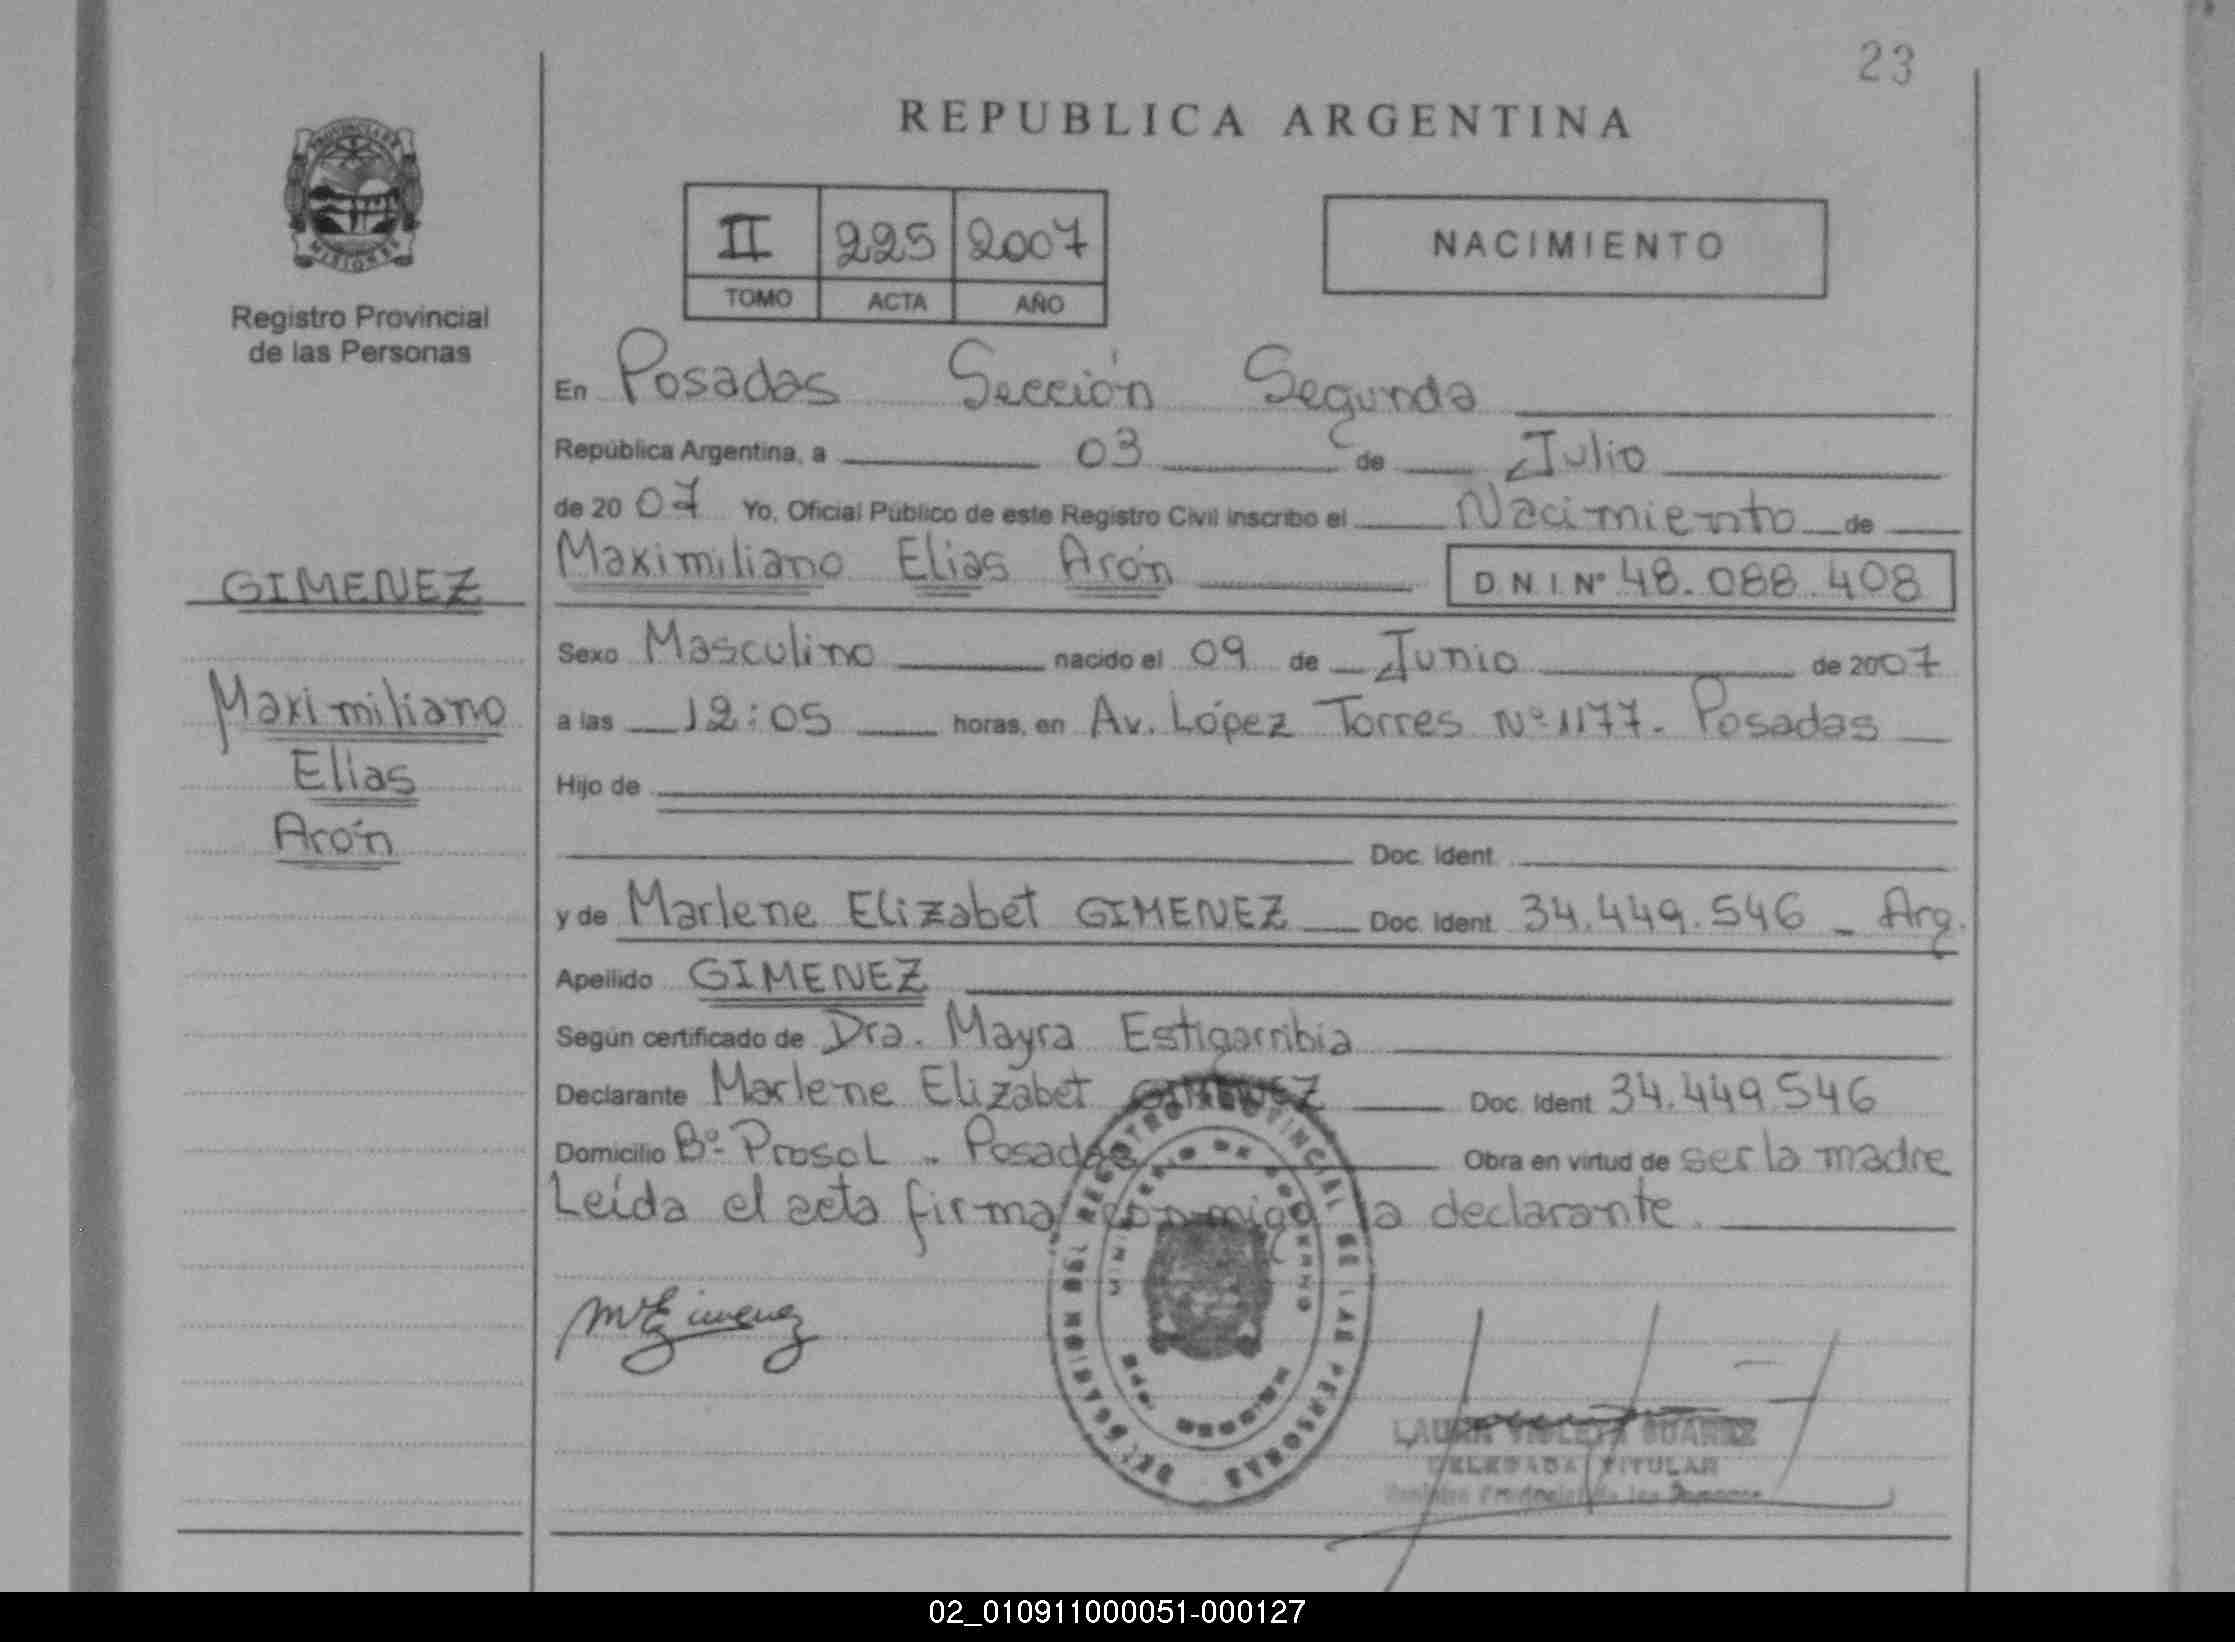 23
REPUBLICA ARGENTINA
PROVINCIA DE
MISIONES
Registro Provincial
de las Personas
II 225 2007
TOMO ACTA AÑO
NACIMIENTO
En Posadas Sección Segunda
República Argentina, a 03 de Julio
de 2007 Yo, Oficial Público de este Registro Civil inscribo el Nacimiento de
GIMENEZ
Maximiliano Elias Arón D.N.I. Nº 48.088.408
Sexo Masculino nacido el 09 de Junio de 2007
Maximiliano
a las 12:05 horas, en Av. López Torres Nº 1177. Posadas
Elias
Hijo de
Arón
Doc. Ident.
y de Marlene Elizabet GIMENEZ Doc. Ident. 34.449.546 - Arg.
Apellido GIMENEZ
Según certificado de Dra. Mayra Estigarribia
Declarante Marlene Elizabet GIMENEZ Doc. Ident. 34.449.546
Domicilio Bº Prosol - Posadas Obra en virtud de ser la madre
Leída el acta firma conmigo la declarante.
REGISTRO PROVINCIAL DE LAS PERSONAS
MINISTERIO DE GOBIERNO
MEGimenez
LAURA VIOLETA SUAREZ
DELEGADA TITULAR
Registro Provincial de las Personas
02_010911000051-000127